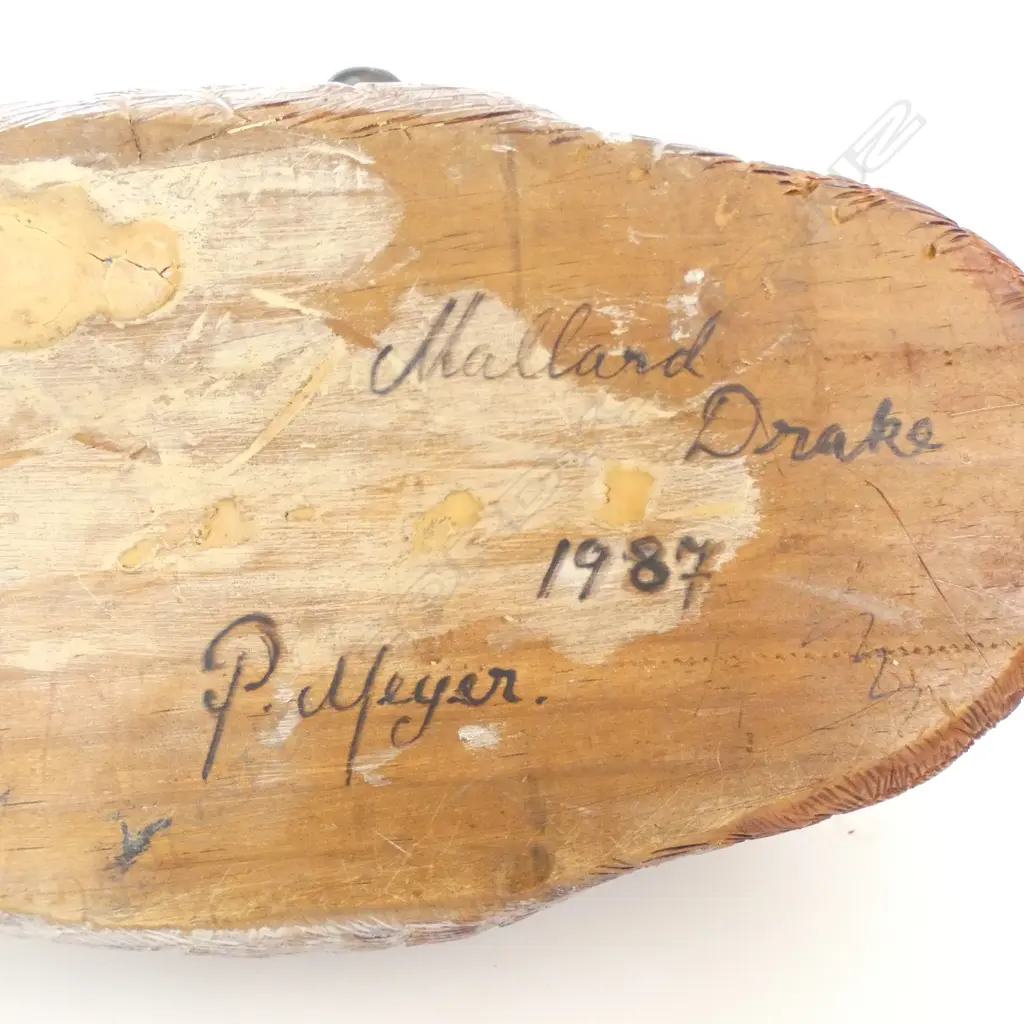 Mallard
Drake
1987
P. Meyer.